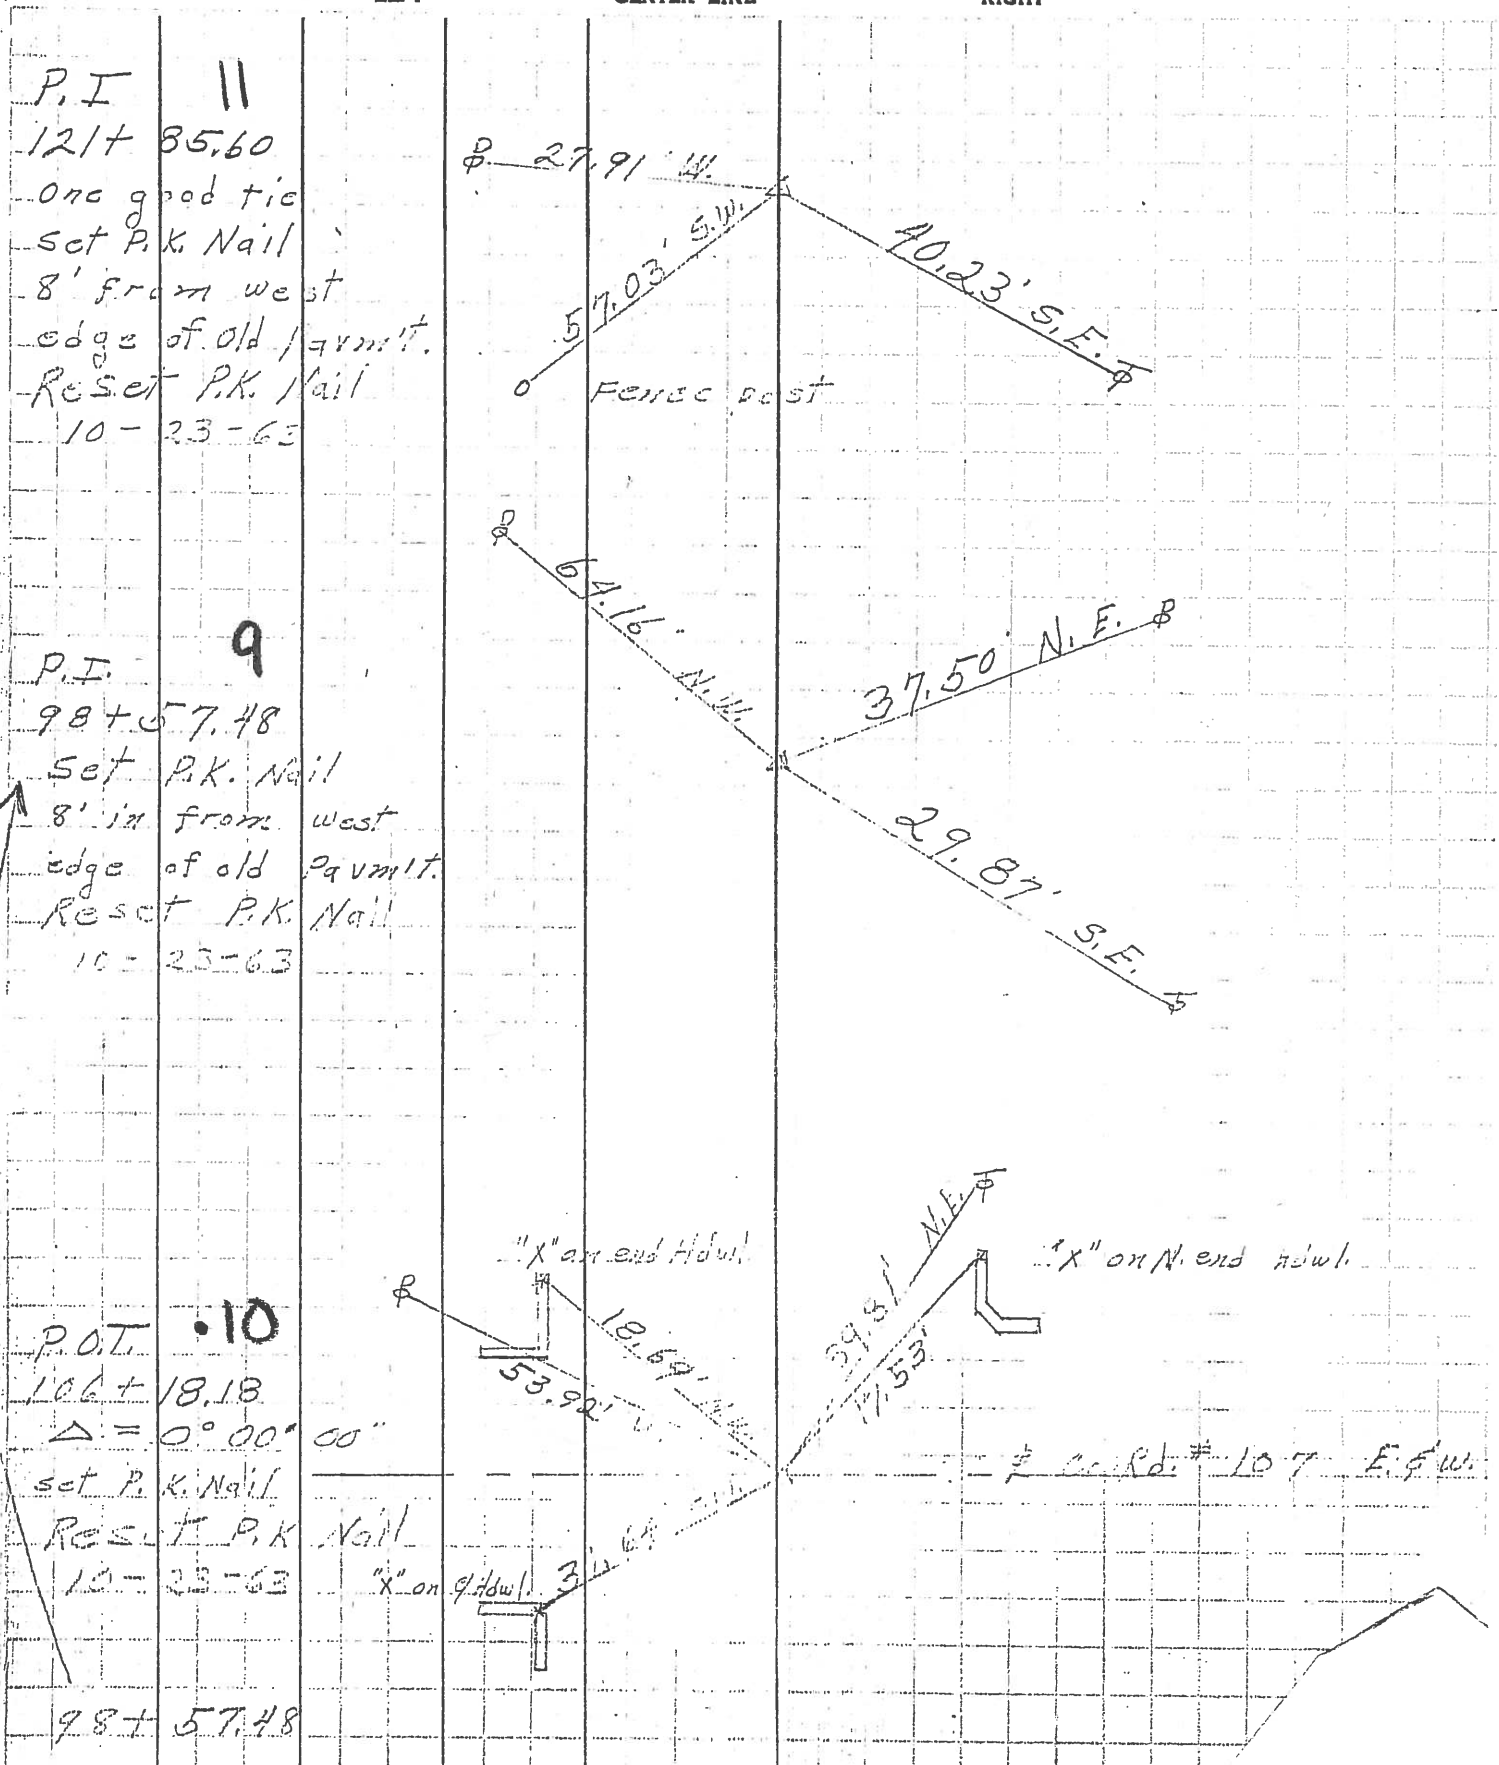 CENTER LINE
RIGHT
P.I 11
121+ 85.60
One good tie
set P.K. Nail
8' from west
edge of old Pavm't.
Reset P.K. Nail
10-23-63
27.91' W.
57.03' S.W.
40.23' S.E.
Fence post
P.I. 9
98+57.48
Set P.K. Nail
8' in from west
edge of old Pavm't.
Reset P.K. Nail
10-23-63
64.16' N.W.
37.50' N.E.
29.87' S.E.
P.O.T. 10
106+18.18
Δ = 0° 00' 00"
set P.K. Nail
Reset P.K Nail
10-23-63
"X" on end Hdwl.
18.69' N.W.
53.92'
39.81 N.E.
17.53'
"X" on N. end hdwl.
Rd. # 107 E. & W.
"X" on Hdwl.
64
98+ 57.48